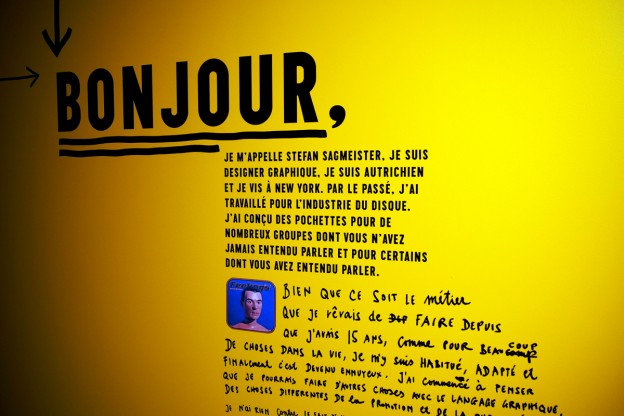 BONJOUR,
JE M'APPELLE STEFAN SAGMEISTER. JE SUIS
DESIGNER GRAPHIQUE, JE SUIS AUTRICHIEN
ET JE VIS À NEW YORK. PAR LE PASSÉ, J'AI
TRAVAILLÉ POUR L'INDUSTRIE DU DISQUE.
J'AI CONÇU DES POCHETTES POUR DE
NOMBREUX GROUPES DONT VOUS N'AVEZ
JAMAIS ENTENDU PARLER ET POUR CERTAINS
DONT VOUS AVEZ ENTENDU PARLER.
BIEN QUE CE SOIT LE MÉTIER
QUE JE RÊVAIS DE FAIRE DEPUIS
QUE J'AVAIS 15 ANS, COMME POUR BEAUCOUP
DE CHOSES DANS LA VIE, JE M'Y SUIS HABITUÉ, ADAPTÉ et
FINALEMENT C'EST DEVENU ENNUYEUX. J'AI COMMENCÉ à PENSER
QUE JE POURRAIS FAIRE D'AUTRES CHOSES AVEC LE LANGAGE GRAPHIQUE,
DES CHOSES DIFFERENTES DE LA PROMOTION ET DE LA
JE N'AI RIEN CONTRE LE